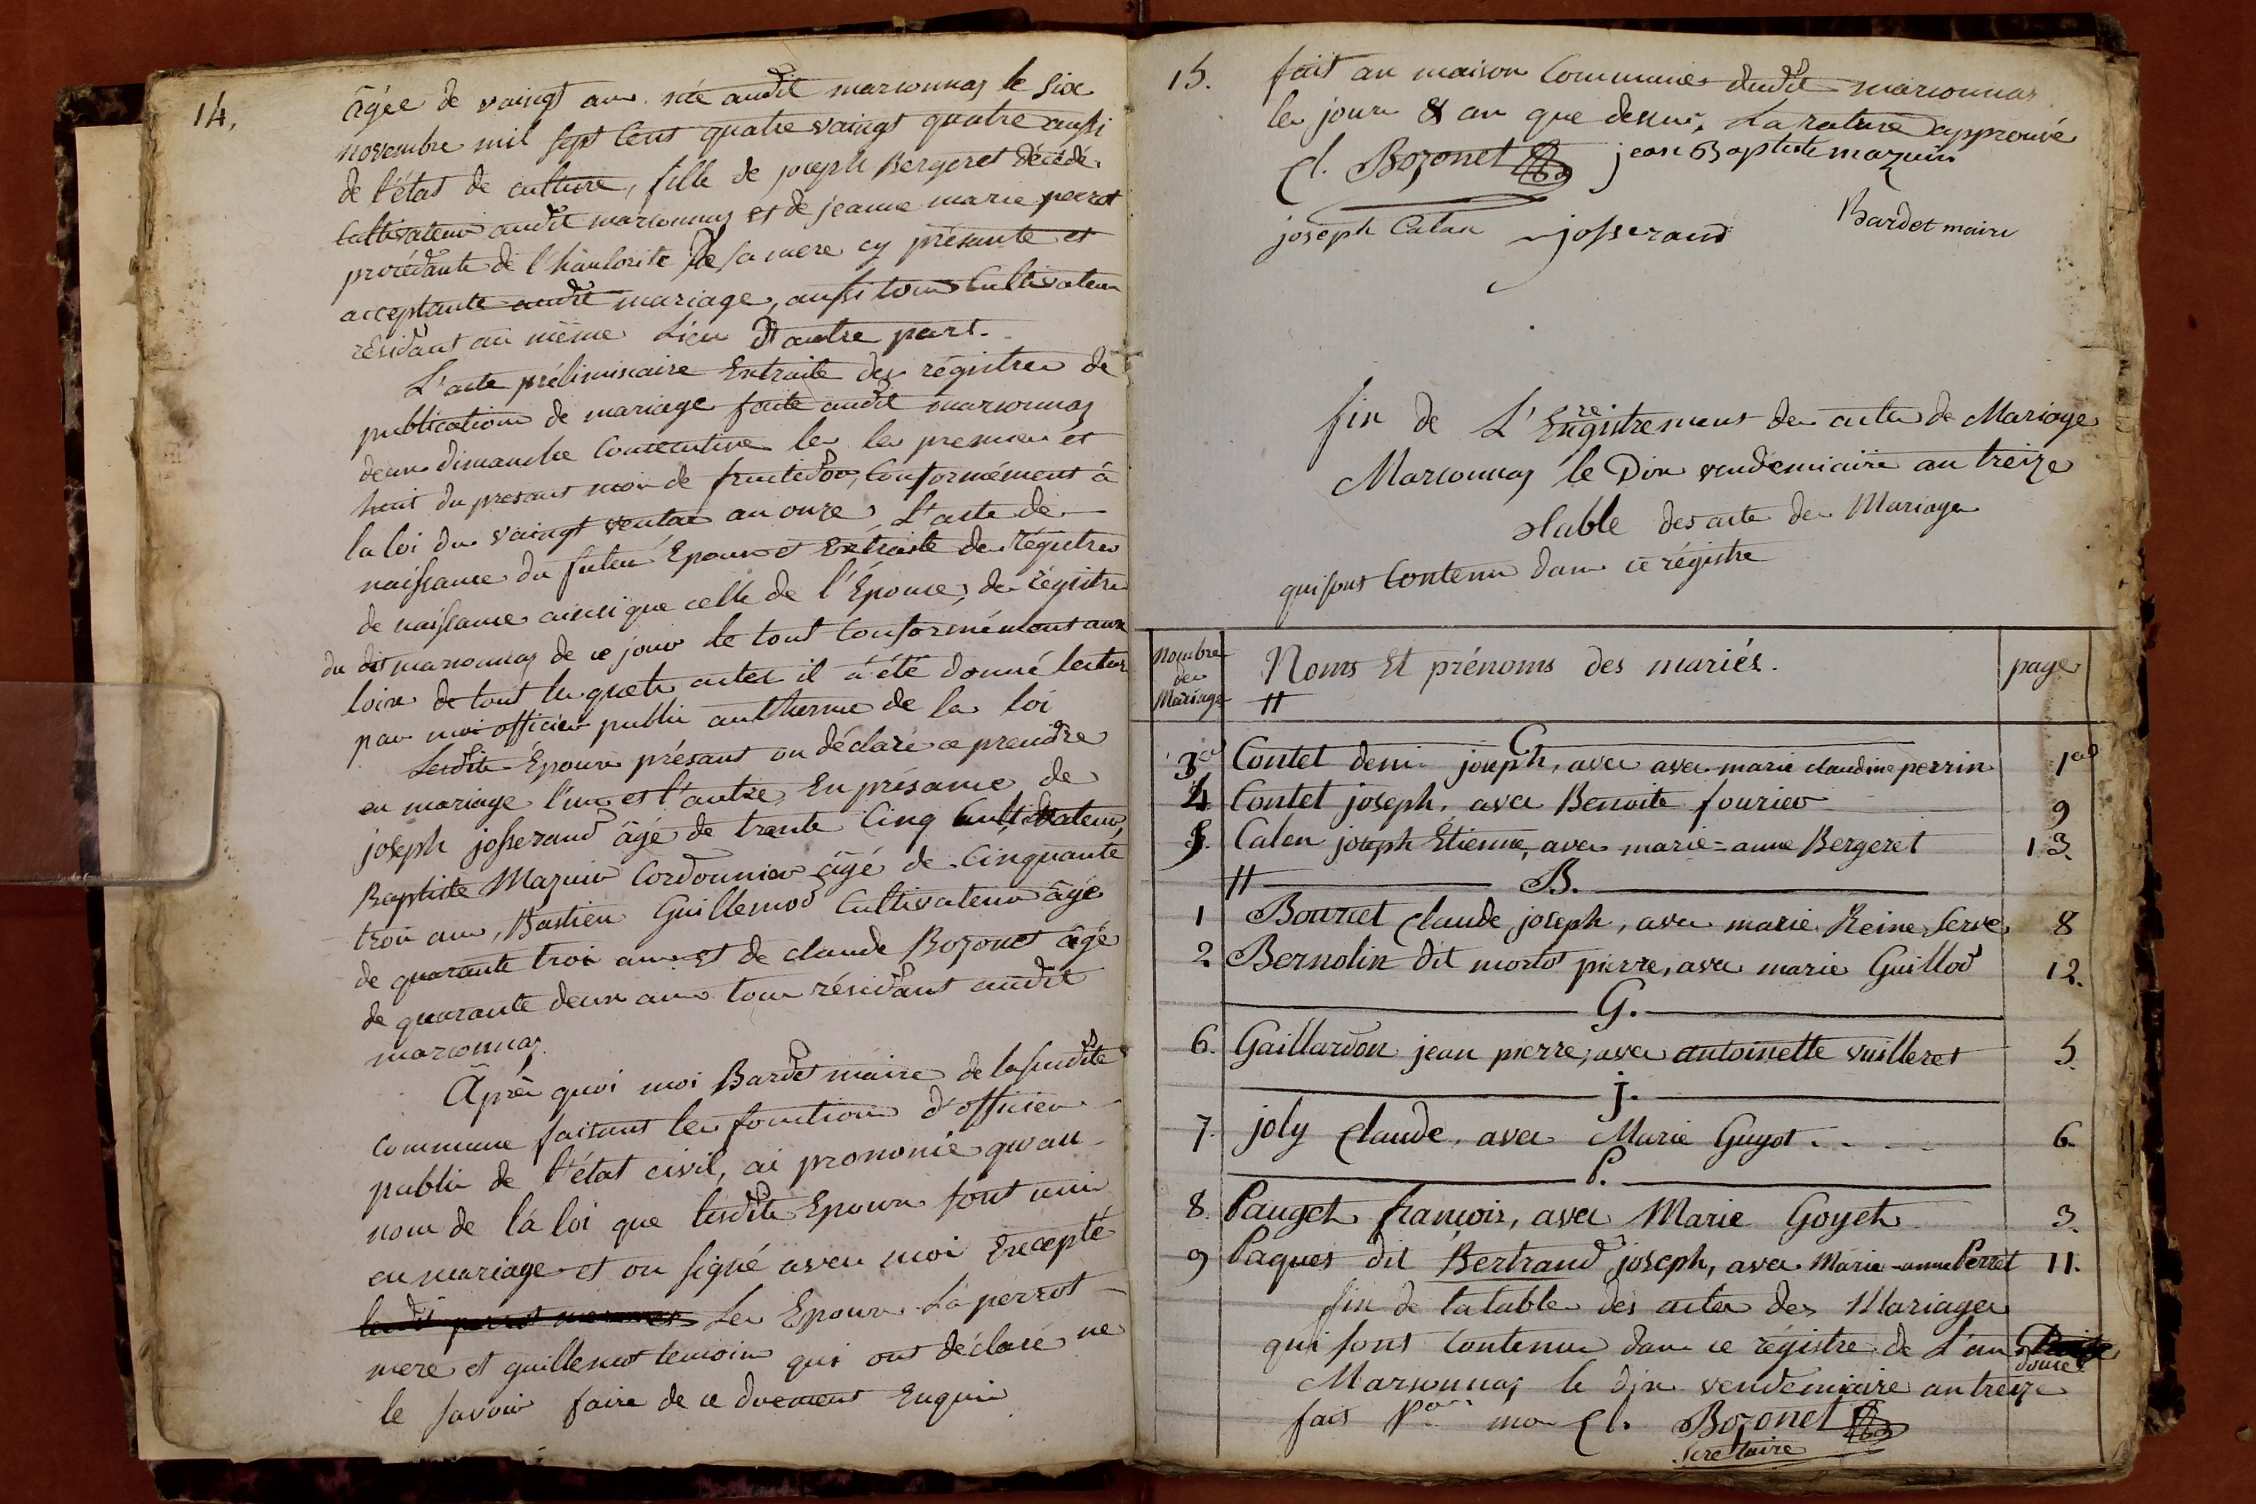 14.
âgée de vaingt ans. née audit marsonnas le six
novembre mil sept Cent quatre vaingt quatre aussi
de l'état de culture, fille de joseph Bergeret décédé
Cultivateur audit marsonnas et de jeanne marie perrot
procédante de l'hautorité de sa mere cy présante et
acceptante audit mariage, aussi tous Cultivateur
résidant au même Lieu d'autre part.
L'acte préliminaire Extraite des régistres de
publication de mariage faite audit marsonnas
deux dimanche Consecutive les premier et
huit du presant mois de fructidor, Conformément à
la loi du vaingt ventose an onze, L'acte de
naissance du futeur Epoux et Extraite des régistres
de naissance ainsi que celle de l'Épouse, des régistres
du dit marsonnas de ce jour le tout Conformément aux
loix de tout lesquels actes il à été donné lectur
par moi officier public au therme de la loi
Lesdits Époux présant on déclaré a prendre
en mariage l'un et l'autre, En présance de
joseph josserand âgé de trante Cinq Cultivateur,
Baptiste Mazuir Cordonnier âgé de Cinquante
trois ans, Bastien Guillemod Cultivateur âgé
de quarante trois ans et de claude Bozonet âgé
de quarante deux ans tous résidant audit
marsonnas.
Après quoi moi Bardet maire de lasudite
Commune faisant les fonctions d'officier
public de l'état civil, ai prononcé qu'au
nom de la loi que lesdits Epoux sont unis
en mariage et on signé avec moi Excepté
Les Epoux La perrot
mere et guillemot temoin qui ont déclaré ne
le savoir faire de ce duement Enquis
15.
fait an maison Commune dudit marsonnas
les jour & an que dessus, La rature approuvé
Cl. Bozonet jean Baptiste mazuir
joseph Calan josserand Bardet maire
fin de L'Enregistrement des actes de Mariage
Marsonnas le Dix vendemiaire an treize
Table des acte de Mariage
qui sont Contenu dans ce régistre
Nombre des Mariage
Noms Et prénoms des mariés.
page
C
3 Contet denis joseph, avec avec marie claudine perrin 1er
4 Contet joseph, avec Benoite fourier 9
5. Calan joseph Étienne, avec marie=anne Bergeret 13.
B.
1 Bournet Claude joseph, avec marie Reine Serve 8
2. Bernolin dit morlot pierre, avec marie Guillod 12.
G.
6. Gaillardon jean pierre, avec antoinette vuilleret 5.
j.
7. joly Claude, avec Marie Guyot 6.
P.
8. Pauget françois, avec Marie Goyet 3.
9 Paques dit Bertrand joseph, avec Marie-anne Perret 11.
fin de la table des actes des Mariages
qui sont Contenu dans ce régistre de L'an
douze
Marsonnas le dix vendemiaire an treize
fait Par moi Cl. Bozonet
Secretaire